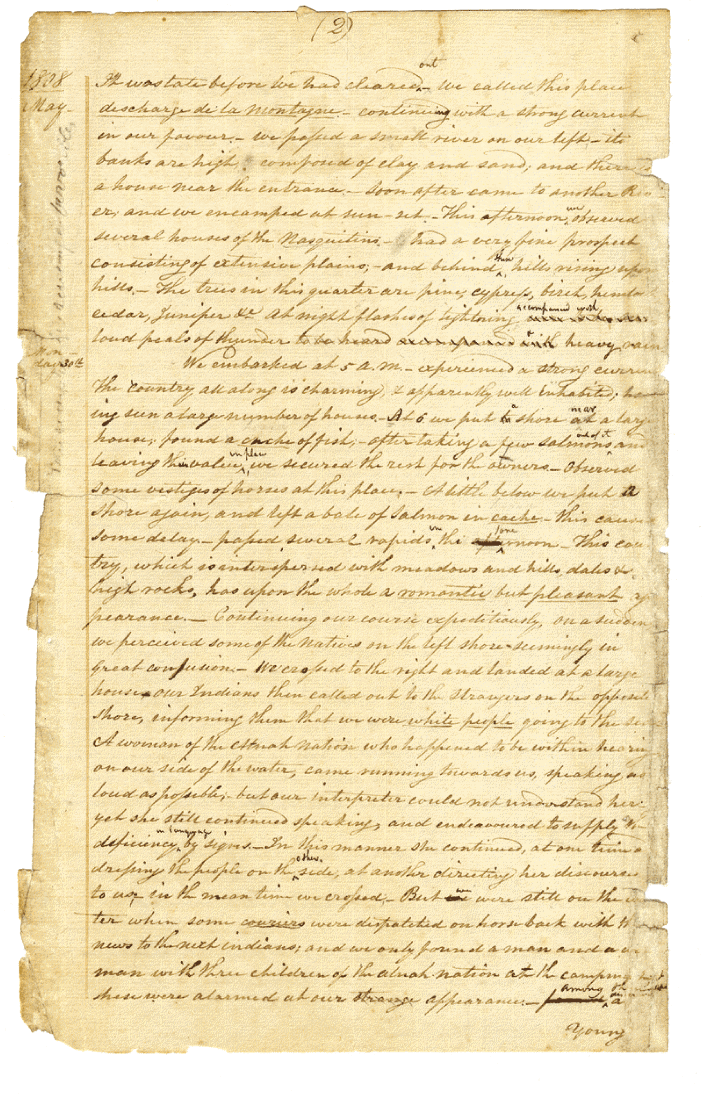 (2)
1808
May.
It was late before we had cleared out - We called this place
discharge de la Montagne - continuing with a strong current
in our favour - we passed a small river on our left - its
banks are high composed of clay and sand; and there
a house near the entrance. - Soon after came to another Riv
er; and we encamped at sun-set. - This afternoon we observed
several houses of the Nasquitins. - had a very fine prospect
consisting of extensive plains, - and behind them hills rising upon
hills. - The trees in this quarter are pine, cypress, birch, hemlock
cedar, Juniper &c At night flashes of lightning accompanied with
loud peals of thunder to be heard with heavy rain
30th We embarked at 5 a.m. - experienced a strong current
The country all along is charming, & apparently well inhabited; hav
ing seen a large number of houses. - At 6 we put in a shore at a large
house; found a cache of fish; - after taking a few salmons out of it and
leaving the value in place, we secured the rest for the owners. - Observed
some vestiges of horses at this place. - A little below we put a
shore again, and left a bale of Salmon in cache. - this caused
some delay. - passed several rapids in the fore noon - This coun
try, which is interspersed with meadows and hills, dales &
high rocks, has upon the whole a romantic but pleasant ap
pearance. - Continuing our course expeditiously, on a sudden
we perceived some of the Natives on the left shore seemingly in
great confusion. - We crossed to the right and landed at a large
house our Indians then called out to the strangers on the opposite
shore, informing them that we were white people going to the sea
A woman of the Atnah Nation who happened to be within hearing
on our side of the water, came running towards us, speaking as
loud as possible; - but our interpreter could not understand her
yet she still continued speaking, and endeavoured to supply the
deficiency in language by signs. - In this manner she continued, at one time ad
dressing the people on the other side, at another directing her discourse
to us, in the mean time we crossed, - But we were still on the wa
ter when some couriers were dispatched on horse back with the
news to the next indians; and we only found a man and a wo
man with three children of the atnah nation at the camping
these were alarmed at our strange appearance. - among a
Young